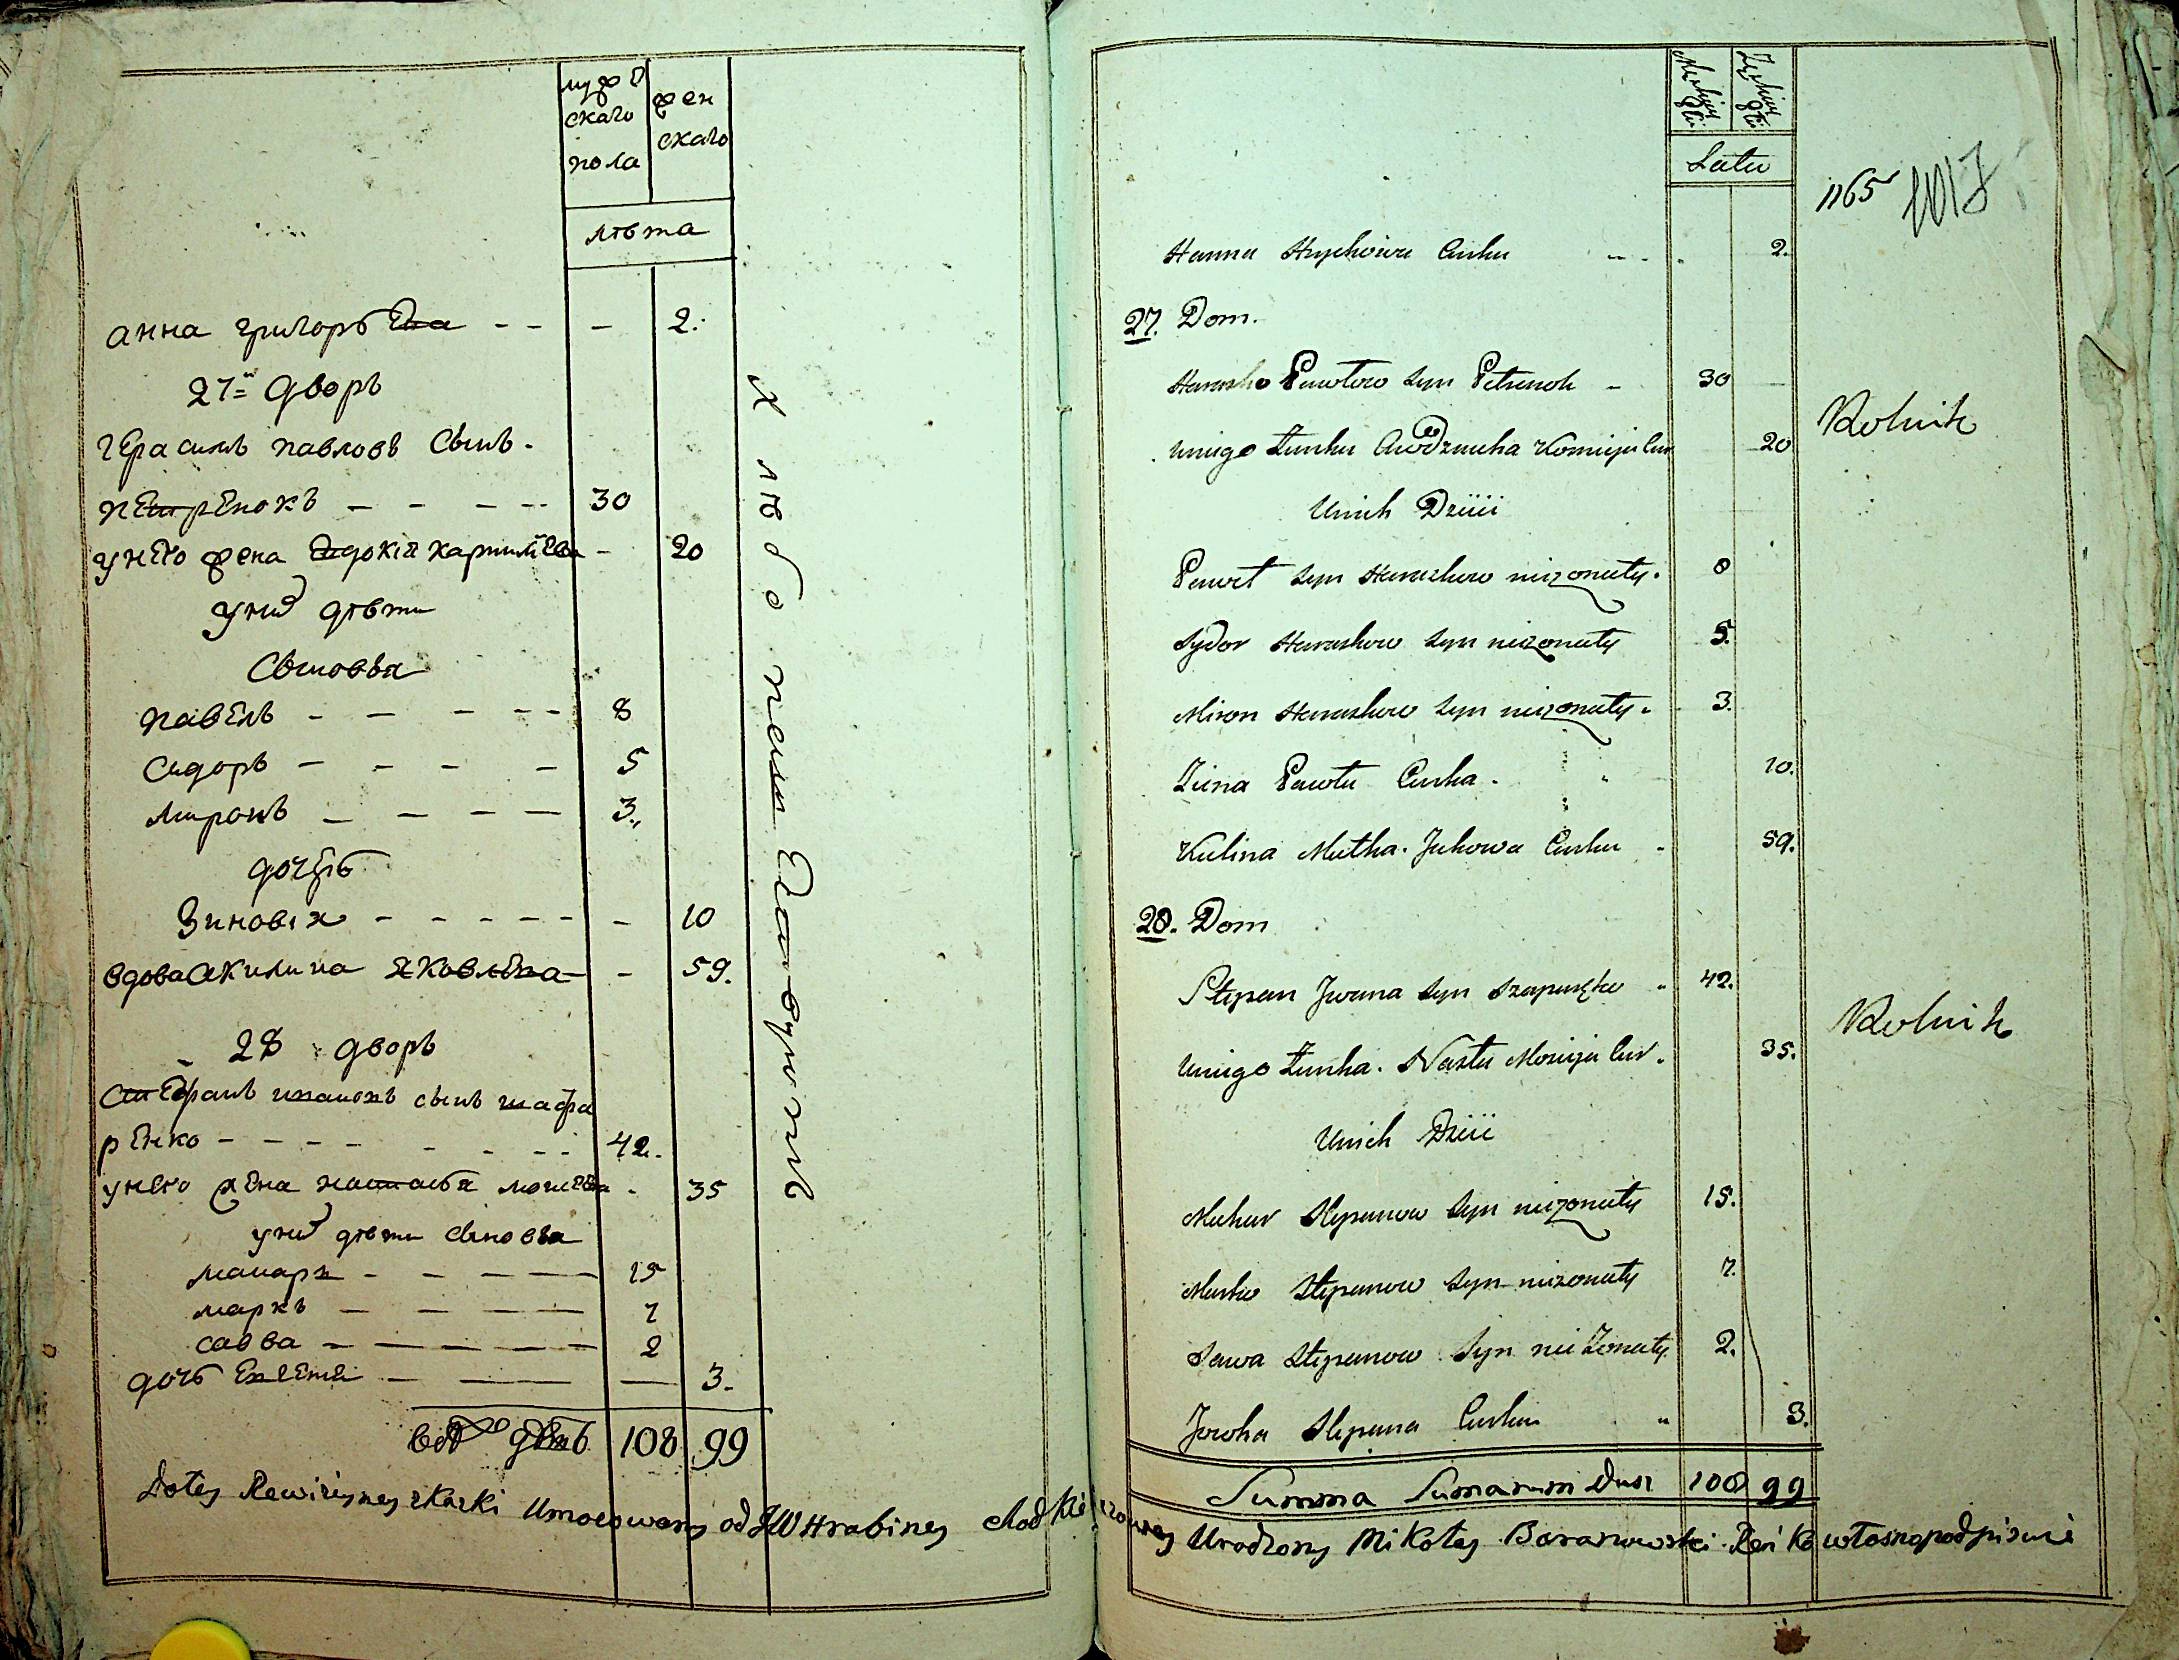 мужескаго пола
женскаго
лѣта
анна григорьева - - - 2.
27й дворъ
Герасимъ павловъ сынъ -
петренокъ - - - - 30
у него жена Евдокія карпиліева - 20
у них дѣти
Сыновья
павелъ - - - - - 8
сидоръ - - - - 5
миронъ - - - - 3.
дочерь
Зиновія - - - - - - 10
вдова акилина яковлева - - 59.
28 дворъ
Степанъ ивановъ сынъ шафа
ренко - - - - - - - - 42.
у него жена настасья моисеева - 35
у них дѣти сыновья
макаръ - - - - - 15
маркъ - - - - 7
савва - - - - - - 2
дочь - - - - 3.
всѣхъ душъ 108 99
хлѣбопашествуютъ
Męskiey Płci
Żęskiey Płci
Latu
1165 1017
Hanna Hryćkowa Curka - - - 2.
27. Dom.
Haraśko Pawłow Syn Petrenok - 30
Rolnik
uniego Żunka Awdzucha Cur 20
Unich Dzieii
Paweł Syn Haraskow nieżonaty. 8
Sydor Haraskow Syn nieżonaty 5.
Miron Haraskow Syn nieżonaty. 3.
Zina Pawła Curka. 10.
Kulina Matka. Jakowa Curka 59.
28. Dom
Stepan Jwana Syn 42.
Rolnik
uniego Żunka. Nasta Mosieja Cur. 35.
Unich Dzieii
Makar Stepanow Syn nieżonaty 15.
Marko Stepanow Syn nieżonaty 7.
Sawa Stepanow Syn nieżonaty 2.
Jewka Stepana Curka 3.
Summa Sumarum Dusz 108 99
Dotey Rewizyiney skaski Umocowany od JW Hrabiney Chodkiewiczowey Urodzony Mikołay Baranowski Ręką własną podpisuie